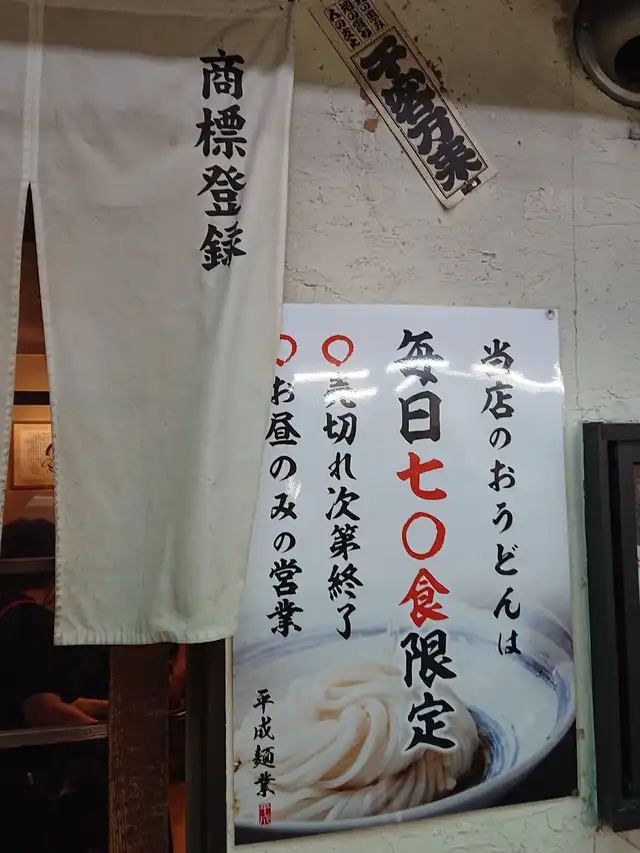 商標登録
千客万来
当店のおうどんは
毎日七〇食限定
〇売切れ次第終了
〇お昼のみの営業
平成麺業